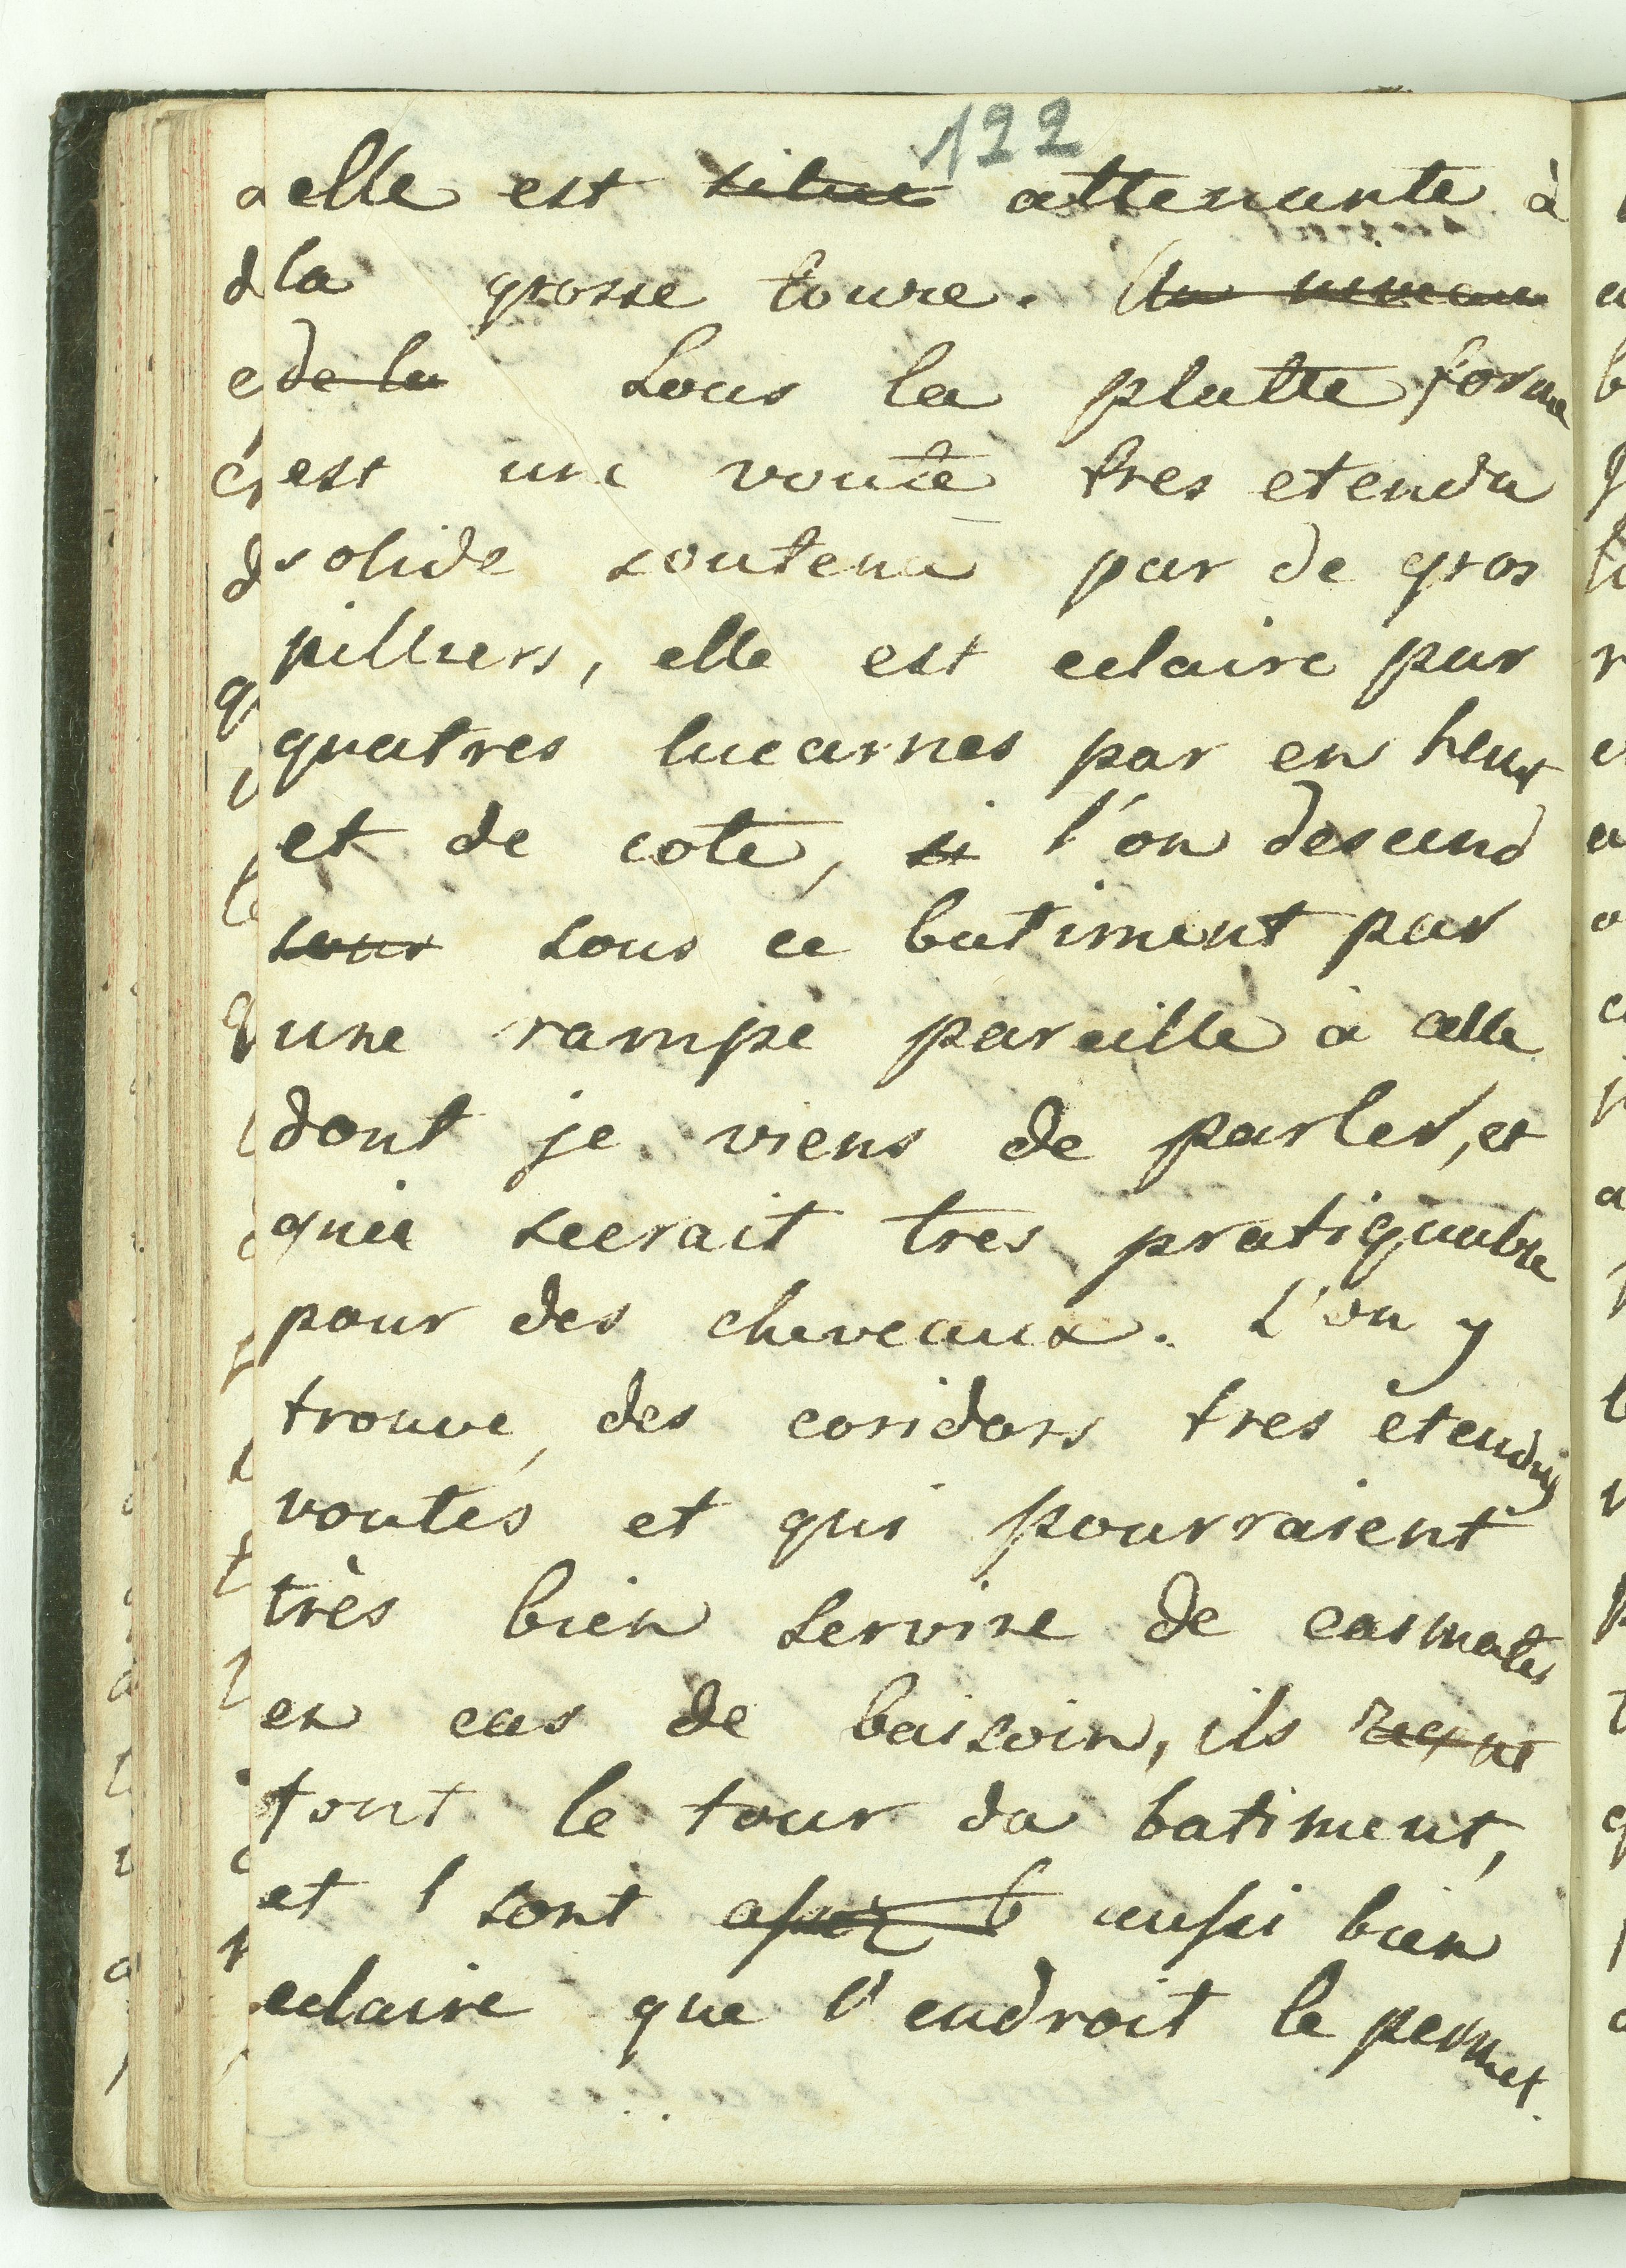 122
elle est ~~situé~~ attenante à
la grosse toure. ~~Au niveau~~
~~de la~~ Sous la platte forme
est une voute tres etendu
solide soutenu par de gros
pilliers, elle est eclaire par
quatres lucarnes par en heut
et de cote, ~~si~~ l'on descend
~~sous~~ sous ce batiment par
une rampe pareille à celle
dont je viens de parler, et
qui seerait tres pratiquable
pour des cheveaux. L'on y
trouve, des coridors tres etendus
voutés et qui pourraient
très bien servire de casmates
en cas de baisoin, ils
font le tour du batiment,
et l sont ~~assez b~~ aussi bien
eclaire que l'endroit le permet.